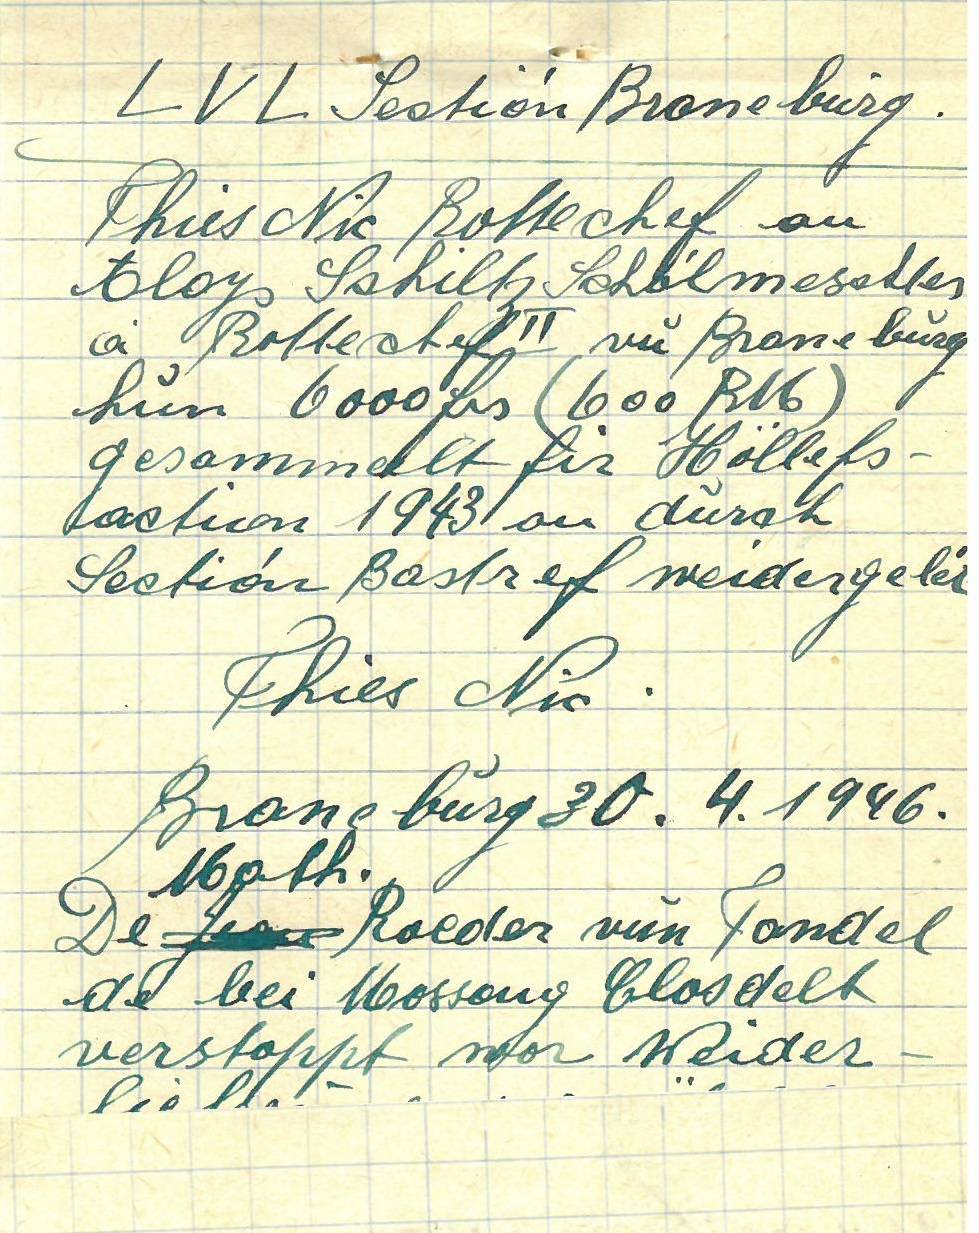 LVL Sectión Braneburg.
Thies Nic Rottechef an
Eloys Schiltz Schólmeschter
a Rottechef II vŭ Braneburg
hŭn 6000frs (600 RM)
gesammelt fir Höllefs-
actiun 1943 an dŭrch
Sectión Bastref weidergeleí
Thies Nic.
Branebŭrg 30. 4. 1946.
Math.
De Roeder vŭn Tandel
dé bei Mossong Closdelt
verstoppt wor Weider-